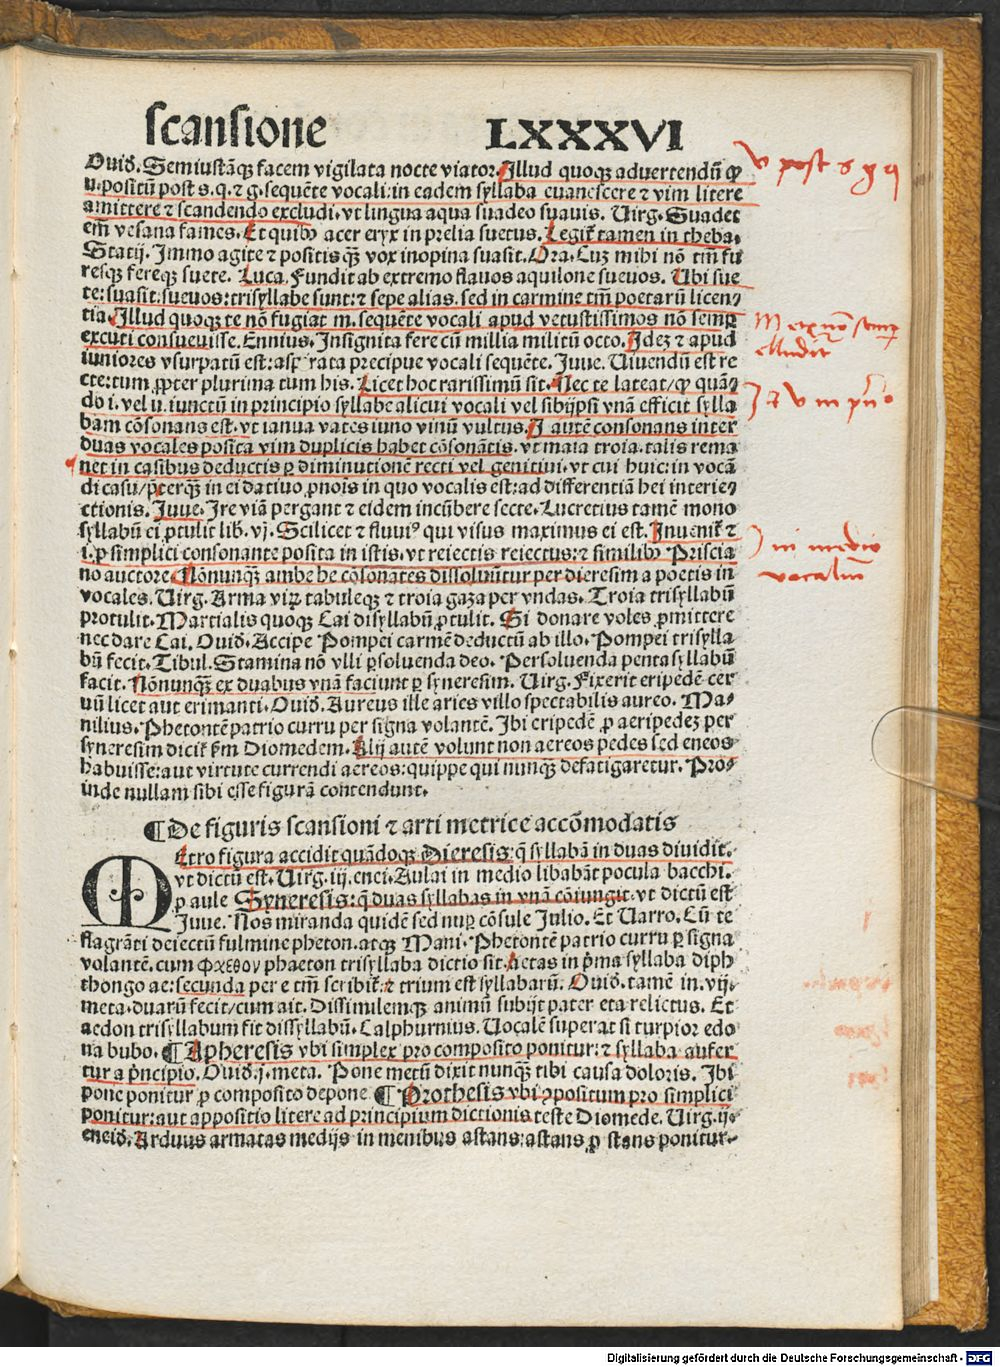 scansione LXXXVI
Ouid. Semiustãqꝫ facem vigilata nocte viator. Illud quoqꝫ aduertendũ ꝙ
u. positũ post s. q. ⁊ g. sequẽte vocali: in eadem syllaba euanescere ⁊ vim litere
amittere ⁊ scandendo excludi. vt lingua aqua suadeo suauis. Uirg. Suadet
em̃ vesana fames. Et quibꝰ acer eryx in prelia suetus. Legit̃ tamen in theba.
Statij. Immo agite ⁊ positis qꝫ̃ vox inopina suasit. Ora. Cuꝫ mihi nõ tm̃ fu
resqꝫ fereqꝫ suete. Luca. Fundit ab extremo flauos aquilone sueuos. Ubi sue
te: suasit: sueuos: trisyllabe sunt: ⁊ sepe alias. sed in carmine tm̃ poetarũ licen⸗
tia. Illud quoqꝫ te nõ fugiat m. sequẽte vocali apud vetustissimos nõ semꝑ
excuti consueuisse. Ennius. Insignita fere cũ millia militũ octo. Ideꝫ ⁊ apud
iuniores vsurpatũ est: asp̃rata precipue vocali sequẽte. Juue. Uiuendũ est re
cte: tum ꝓpter plurima tum his. Licet hoc rarissimũ sit. Nec te lateat / ꝙ quã⸗
do i. vel u. iunctũ in principio syllabe alicui vocali vel sibijpsi vnã efficit sylla
bam cõsonans est. vt ianua vates iuno vinũ vultus. I autẽ consonans inter
duas vocales posita vim duplicis habet cõsonãtis. vt maia troia. talis rema
net in casibus deductis ꝑ diminutionẽ recti vel genitiui. vt cui huic: in vocã
di casu / p̃terqꝫ̃ in ei datiuo ꝓnois in quo vocalis est: ad differentiã hei interie⸗
ctionis. Juue. Ire viã pergant ⁊ eidem incũbere secte. Lucretius tamẽ mono
syllabũ ei ꝓtulit lib. vj. Scilicet ⁊ fluuiꝰ qui visus maximus ei est. Inuenit̃ ⁊
i. ꝓ simplici consonante posita in istis. vt reiectis reiectus: ⁊ similibꝰ Priscia
no auctore. Nõnunqꝫ̃ ambe he cõsonãtes dissoluũtur per dieresim a poetis in
vocales. Uirg. Arma virũ tabuleqꝫ ⁊ troia gaza per vndas. Troia trisyllabũ
protulit. Martialis quoqꝫ Cai disyllabũ ꝓtulit. Si donare voles ꝓmittere
nec dare Cai. Ouid. Accipe Pompei carmẽ deductũ ab illo. Pompei trisylla
bũ fecit. Tibul. Stamina nõ vlli ꝑsoluenda deo. Persoluenda pentasyllabũ
facit. Nõnunqꝫ̃ ex duabus vnã faciunt ꝑ syneresim. Uirg. Fixerit eripedẽ cer
uũ licet aut erimanti. Ouid. Aureus ille aries villo spectabilis aureo. Ma⸗
nilius. Phetontẽ patrio curru per signa volantẽ. Ibi eripedẽ ꝓ aeripedeꝫ per
syneresim dicit̃ ẜm Diomedem. Alij autẽ volunt non aereos pedes sed eneos
habuisse: aut virtute currendi aereos: quippe qui nunqꝫ̃ defatigaretur. Pro⸗
inde nullam sibi esse figurã contendunt.
¶ De figuris scansioni ⁊ arti metrice accõmodatis
MEtro figura accidit quãdoqꝫ Dieresis: q̃ syllabã in duas diuidit.
vt dictũ est. Uirg. iij. enei. Aulai in medio libabãt pocula bacchi.
ꝓ aule Syneresis: q̃ duas syllabas in vnã cõiungit. vt dictũ est
Juue. Nos miranda quidẽ sed nuꝑ cõsule Julio. Et Uarro. Cũ te
flagrãti deiectũ fulmine pheton. atqꝫ Mani. Phetontẽ patrio curru ꝑ signa
volantẽ. cum φαεθον phaeton trisyllaba dictio sit. Aetas in p̃ma syllaba diph
thongo ae: secunda per e tm̃ scribit̃: ⁊ trium est syllabarũ. Ouid. tamẽ in. vij.
meta. duarũ fecit / cum ait. Dissimilemqꝫ animũ subijt pater eta relictus. Et
aedon trisyllabum fit dissyllabũ. Calphurnius. Uocalẽ superat si turpior edo
na bubo. ¶ Apheresis vbi simplex pro composito ponitur: ⁊ syllaba aufer
tur a p̃ncipio. Ouid. j. meta. Pone metũ dixit nunqꝫ̃ tibi causa doloris. Ibi
pone ponitur ꝓ composito depone ¶ Prothesis vbi ꝯpositum pro simplici
ponitur: aut appositio litere ad principium dictionis teste Diomede. Uirg. ij.
eneid. Arduus armatas medijs in menibus astans: astans ꝓ stans ponitur.
v post s g q
M ex nõ semꝑ
elludit
I et V in prin°
I in medio
vocaliũ
Digitalisierung gefördert durch die Deutsche Forschungsgemeinschaft - DFG